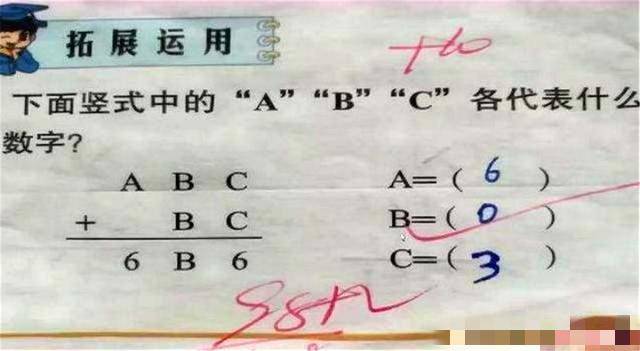 拓展运用
+10
下面竖式中的“A”“B”“C”各代表什么
数字?
A B C
+ B C
6 B 6
A=( 6 )
B=( 0 )
C=( 3 )